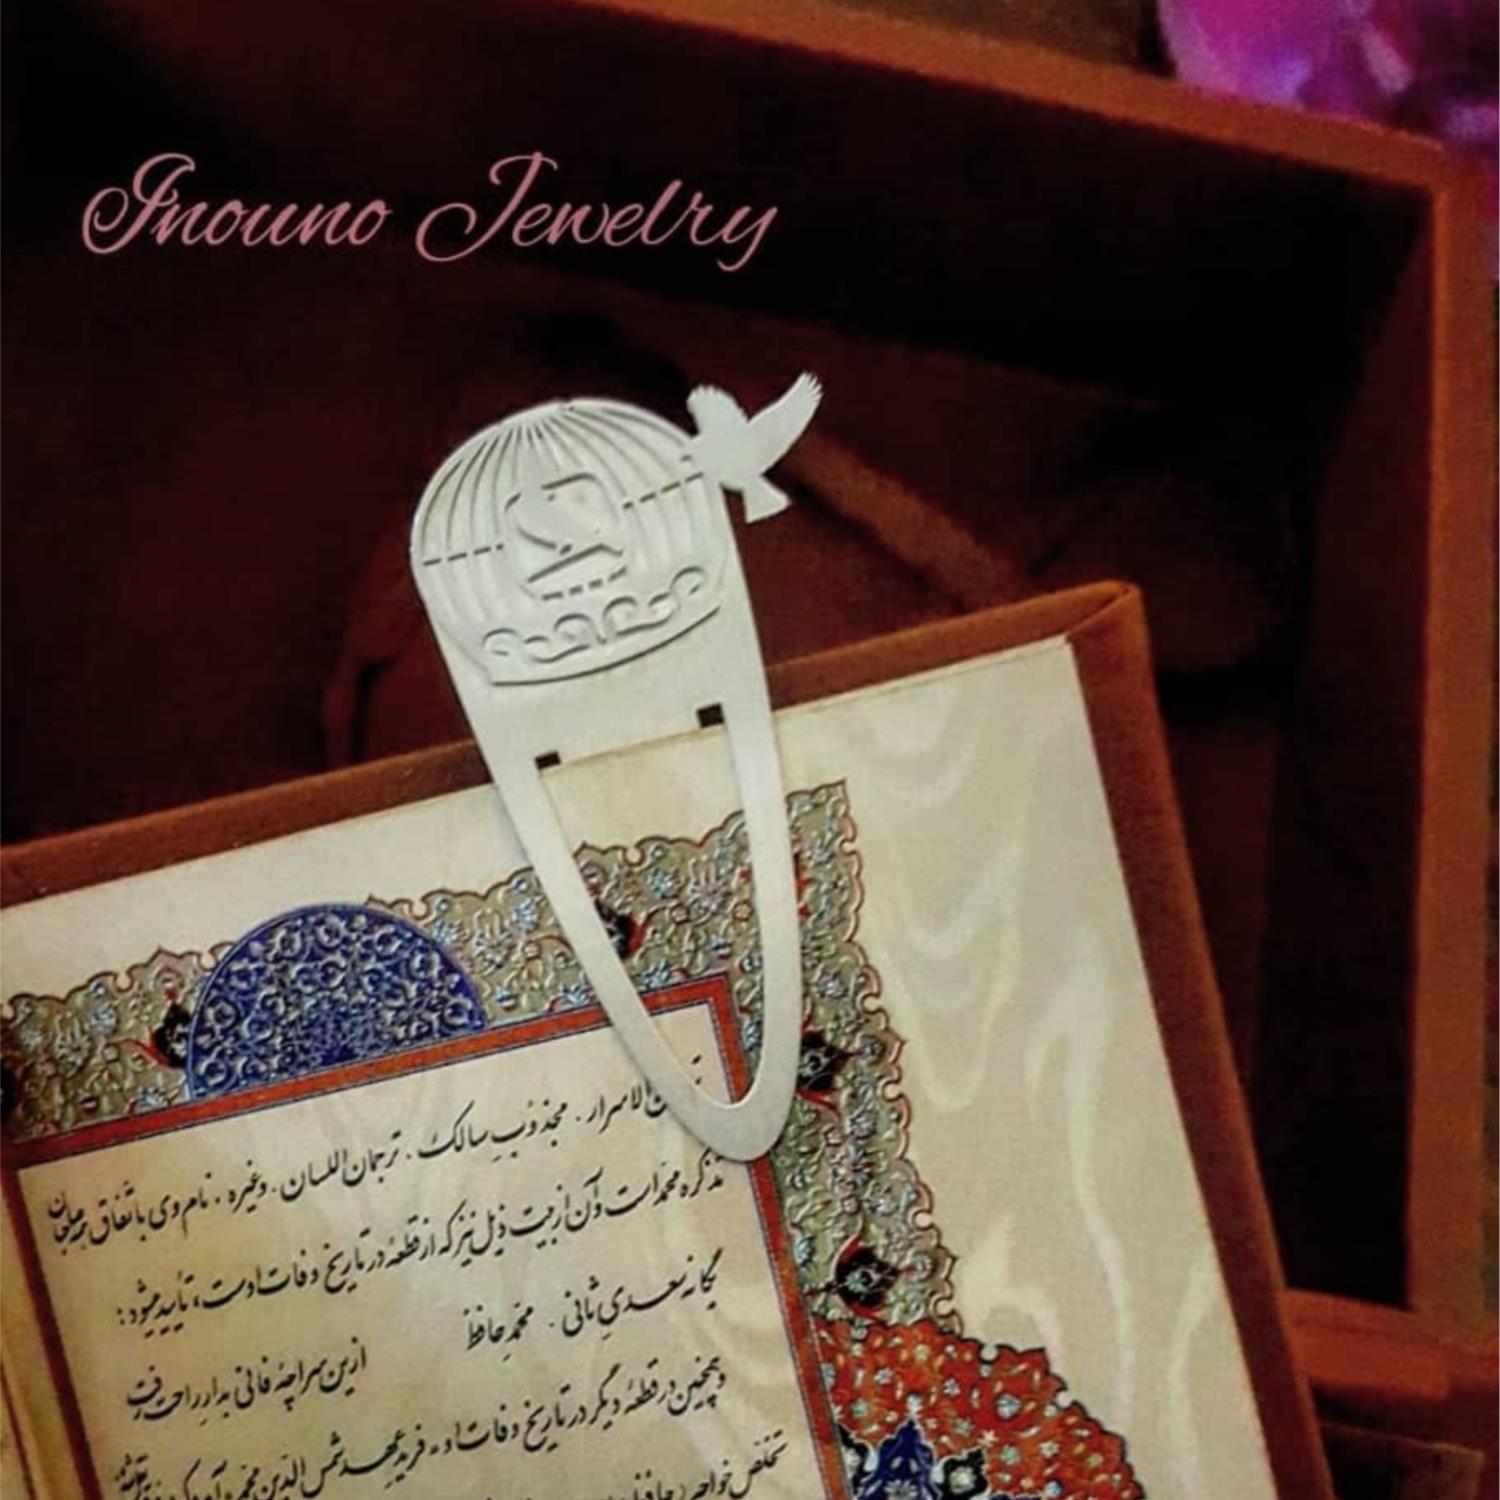 Inouno Jewelry
الاسرار. مجذوب سالک. ترجمان اللسان. وغیره. نام وی باتفاق همه میان
تذکره محمد است و آن از بیت ذیل نیز که از قطعهٔ در تاریخ وفات اوست، تأیید میشود:
یگانه سعدیِ ثانی. محمدِ حافظ
ازین سراچهٔ فانی بدارِ راحت رفت
و همچنین در قطعهٔ دیگر در تاریخ وفات او، فرید عهد شمس الدین محمد
تخلص خواجه (حافظ